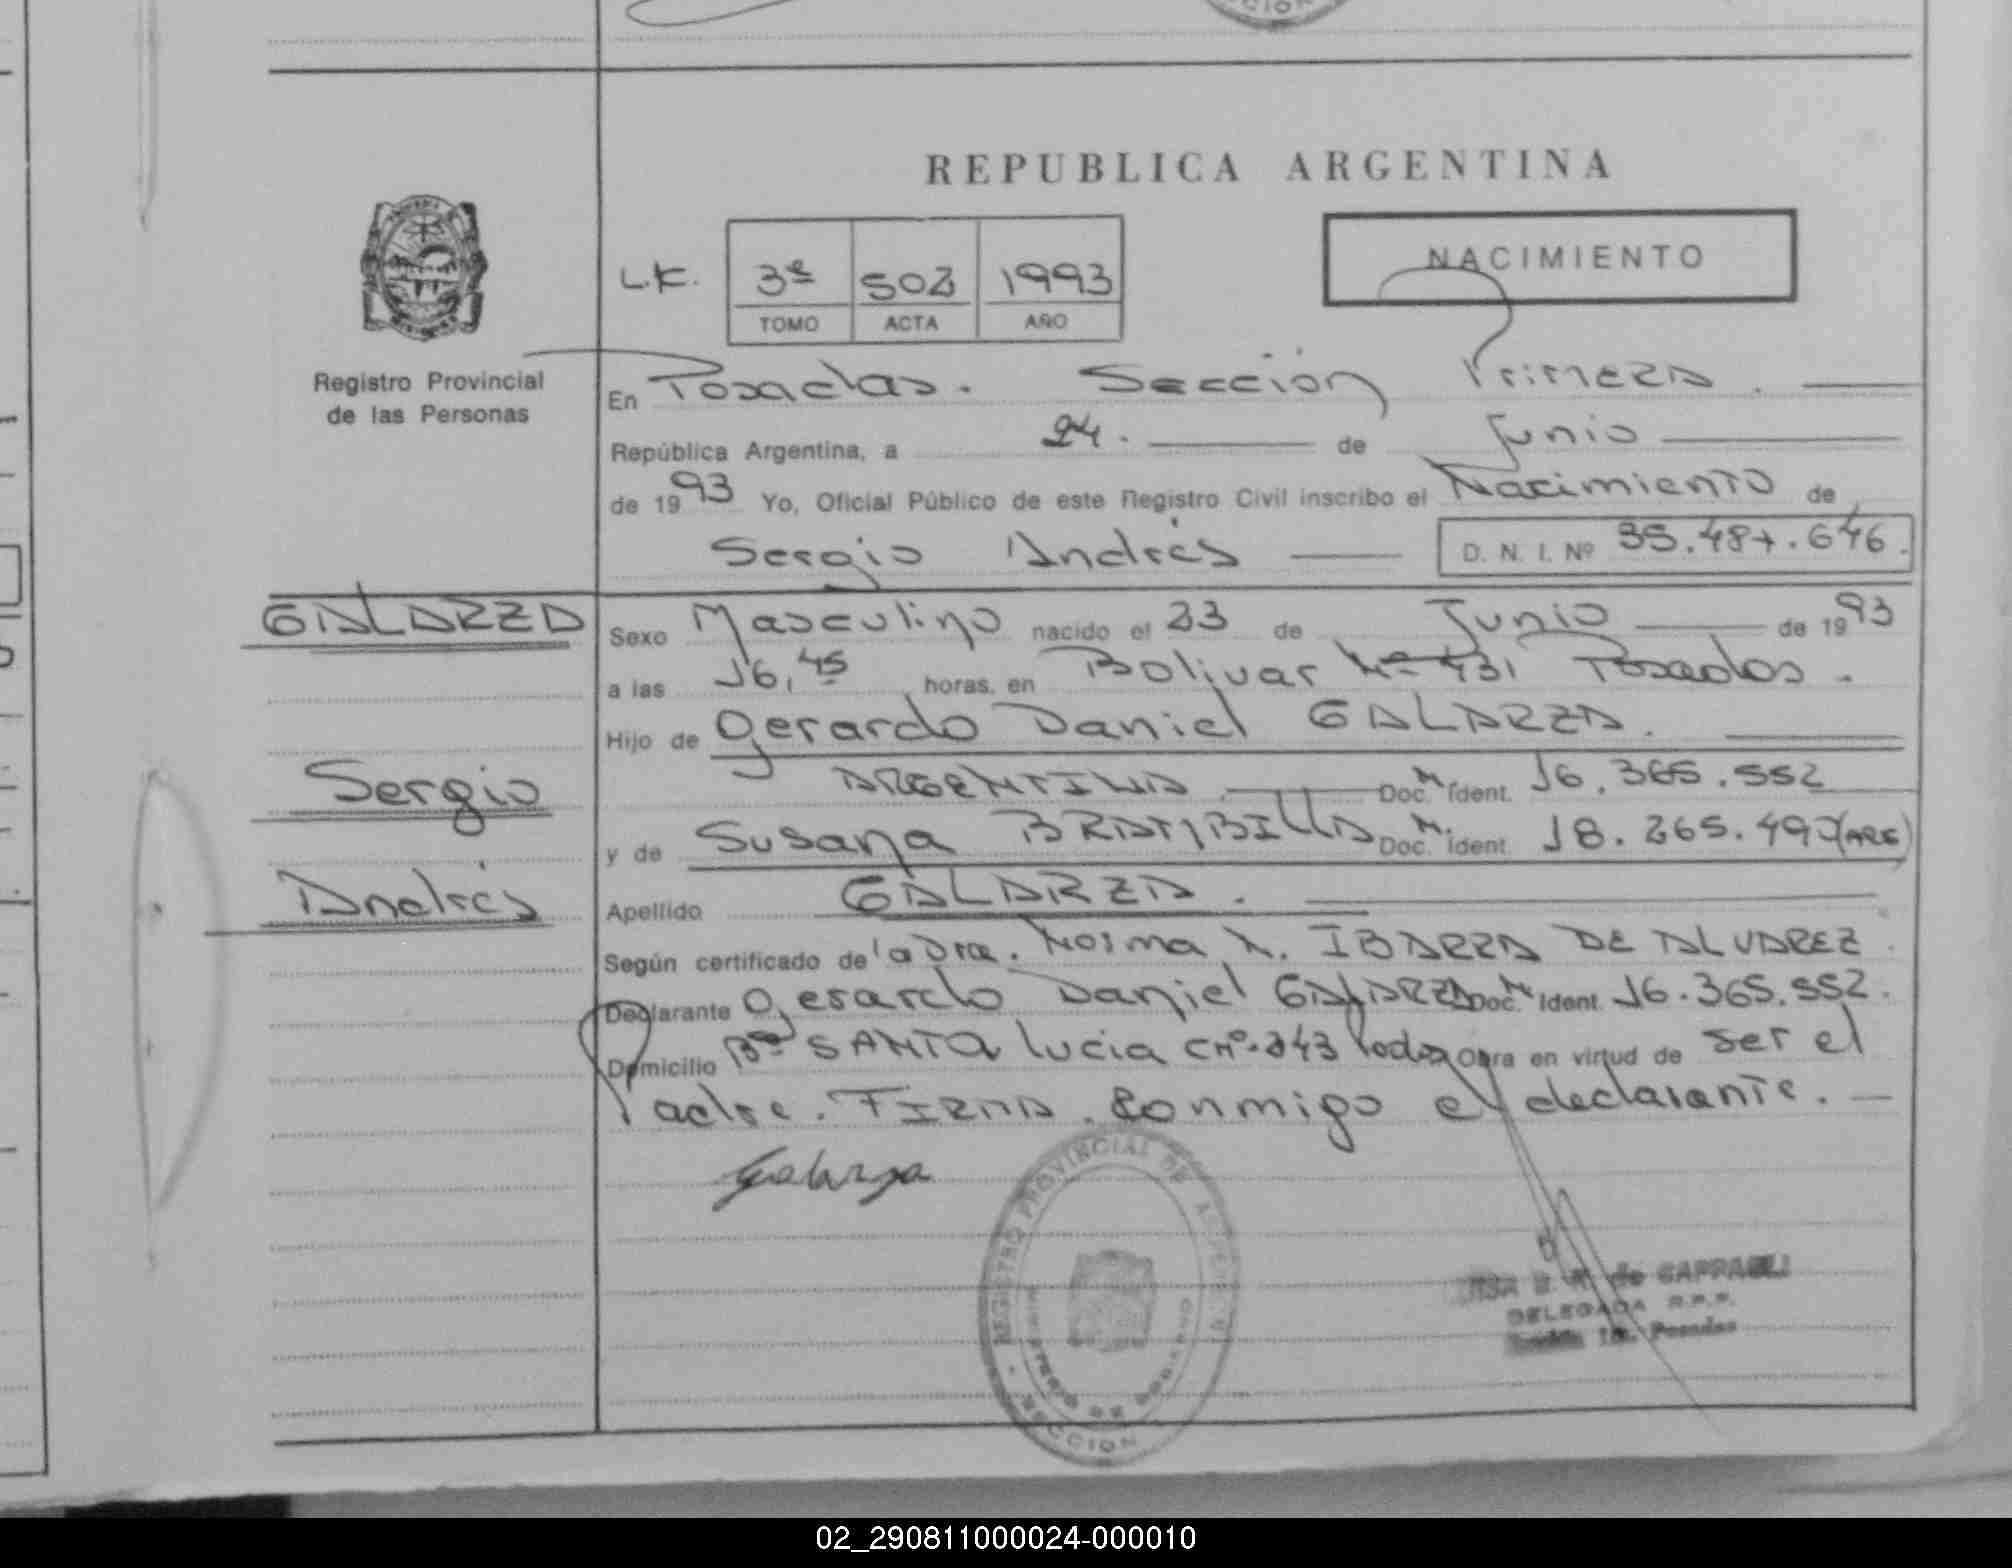 REPUBLICA ARGENTINA
NACIMIENTO
L.K. 3º 502 1993
TOMO ACTA AÑO
Registro Provincial
de las Personas
En Posadas. Sección Primera.
República Argentina, a 24. de Junio
de 1993 Yo, Oficial Público de este Registro Civil inscribo el Nacimiento de
Sergio Andrés D. N. I. Nº 35.487.646.
GALARZA
Sergio
Andrés
Sexo Masculino nacido el 23 de Junio de 1993
a las 16,45 horas, en Bolivar Nº 431 Posadas.
Hijo de Gerardo Daniel GALARZA.
ARGENTINA. Doc. M. Ident. 16.365.552
y de Susana BRAMBILLA Doc. M. Ident. 18.265.490 (ARG)
Apellido GALARZA.
Según certificado de la Dra. Norma N. IBARRA DE ALVAREZ.
Declarante Gerardo Daniel GALARZA Doc. M Ident. 16.365.552.
Domicilio Bº SANTA lucia CNº 243 Pods Obra en virtud de ser el
Padre. FIRMA. Conmigo el declarante.
Galarza
REGISTRO PROVINCIAL DE
SECCION
MINISTERIO DE GOBIERNO
de GAPPAELLI
DELEGADA R.P.P.
1a. Posadas
02_290811000024-000010